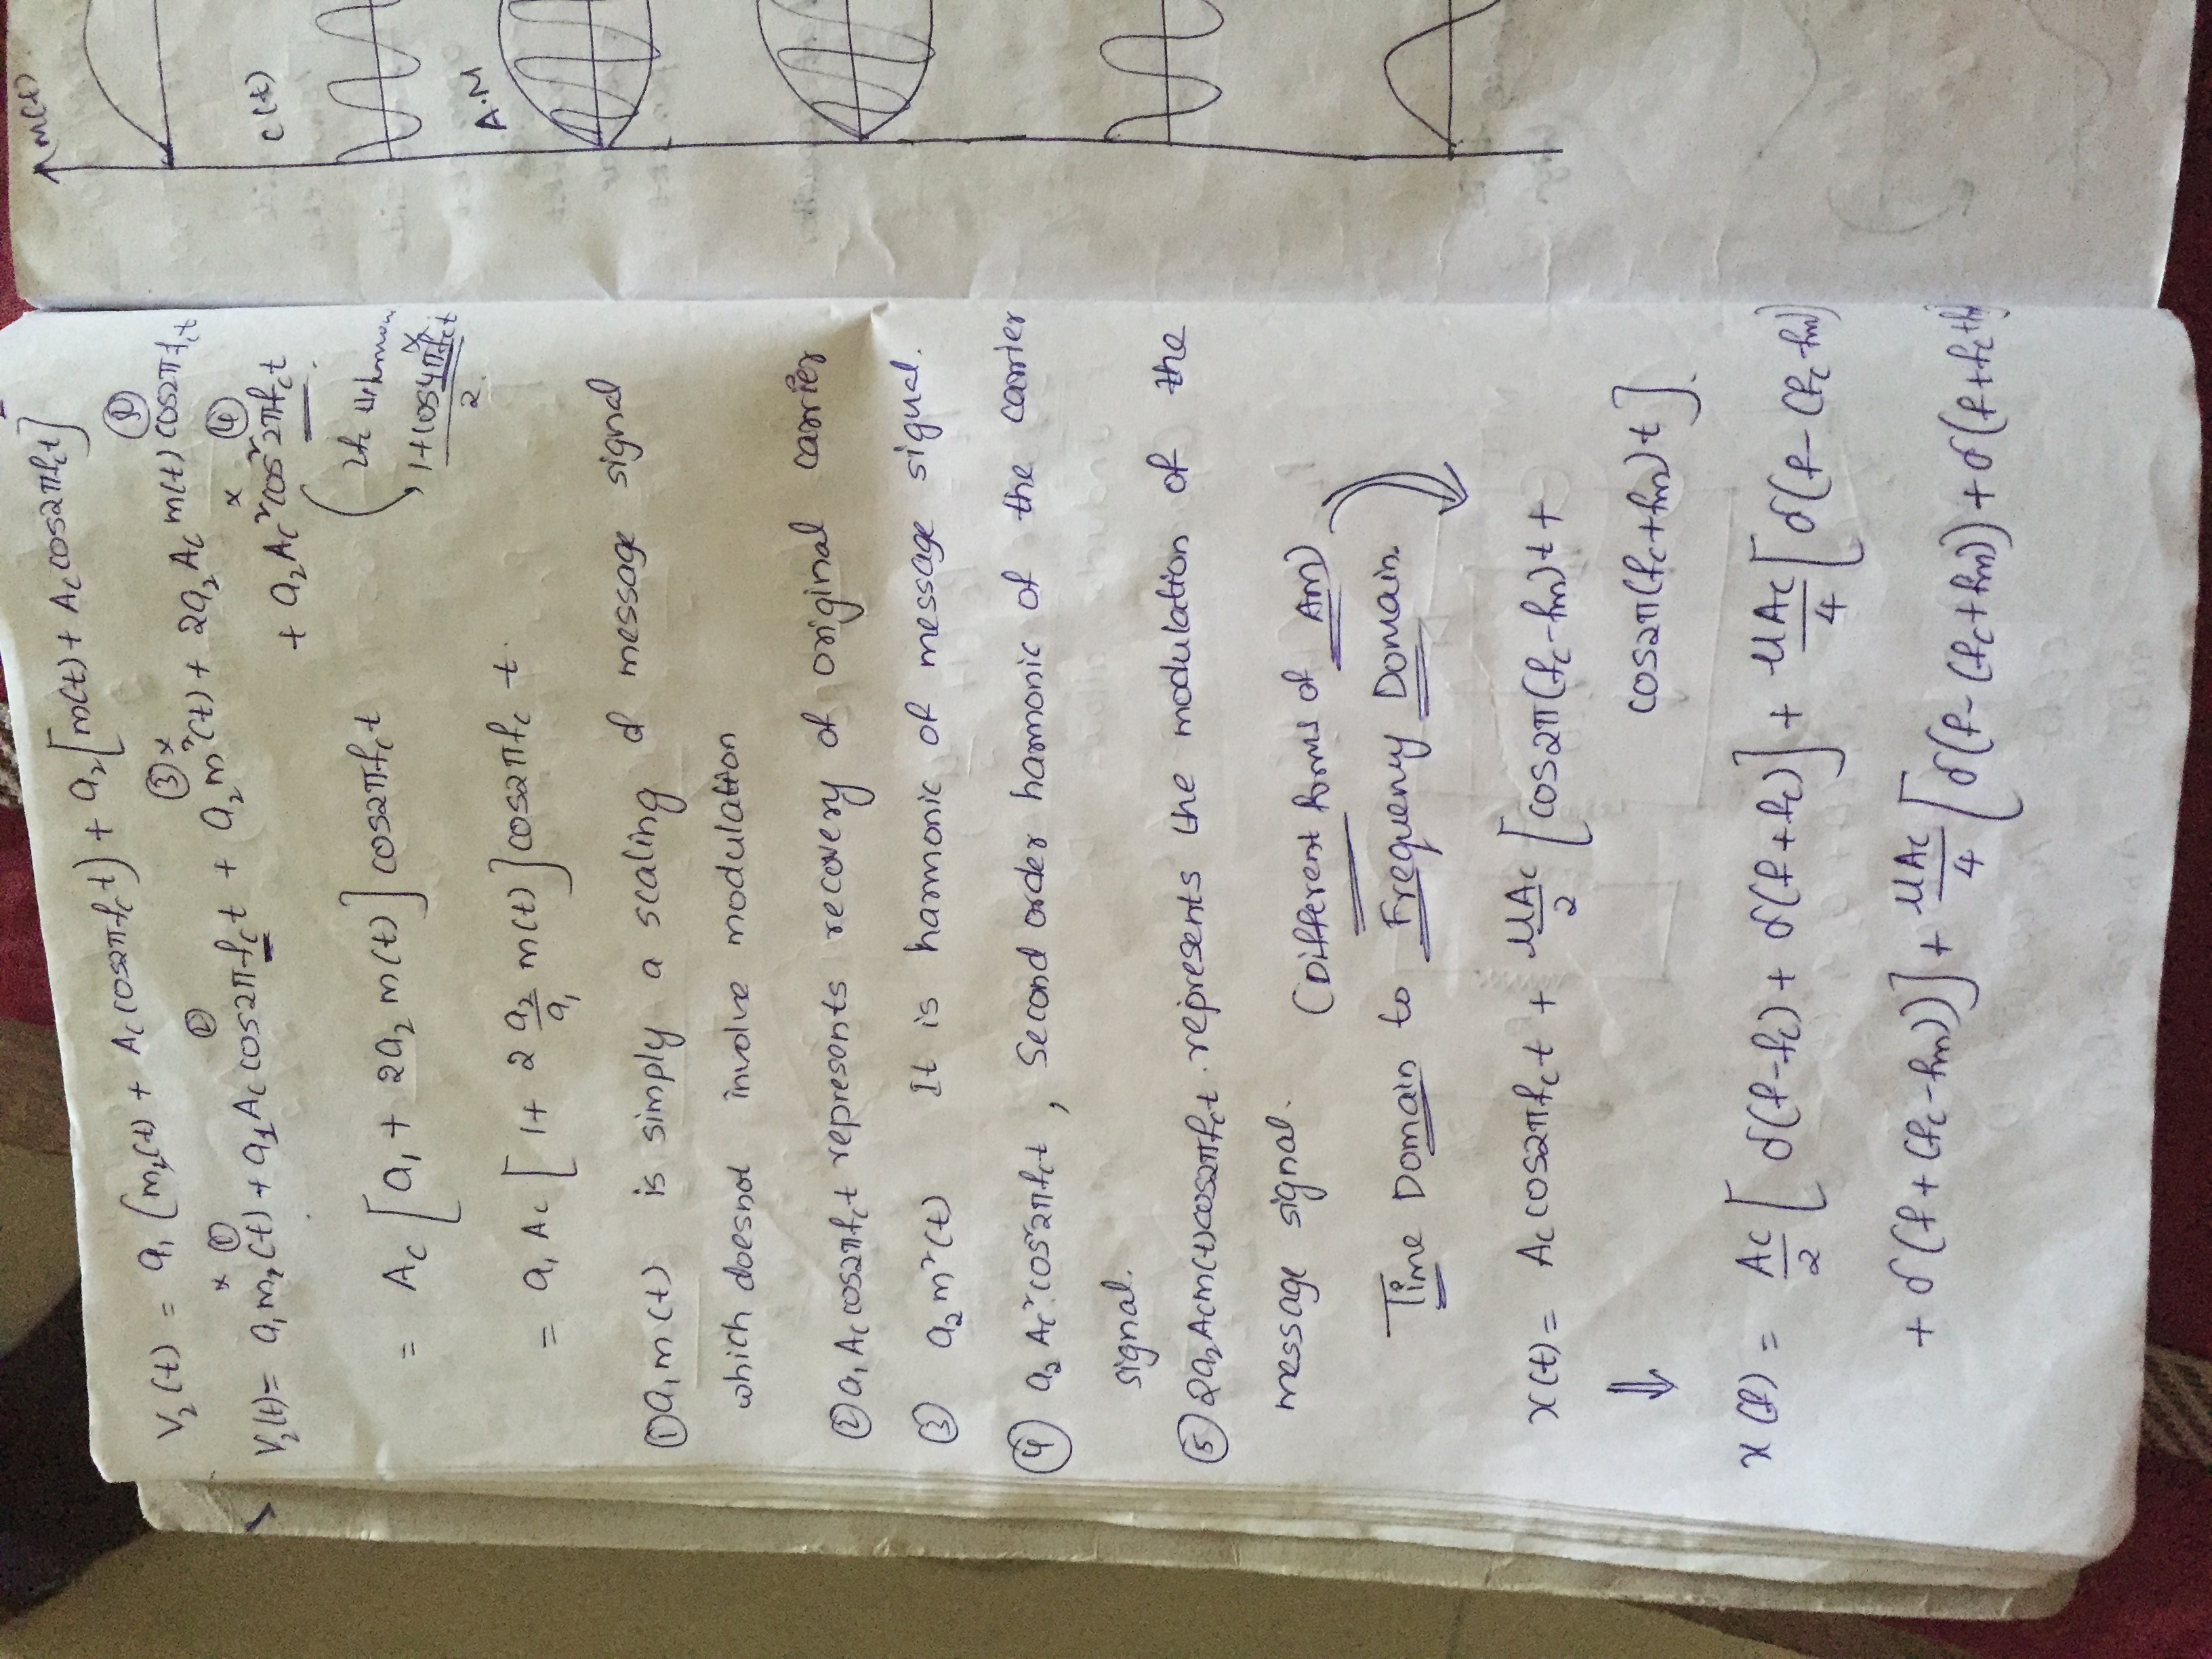 V₂(t) = a₁ (m₂(t) + Ac cos2πfct) + a₂ [m(t) + Ac cos2πfct]²
x ① ② ③ x ⑤
V₂(t) = a₁m₂(t) + a₁ Ac cos2πfct + a₂m²(t) + 2a₂ Ac m(t) cos2πfct
x ④
+ a₂Ac²cos²2πfct
2fc
= Ac [a₁ + 2a₂ m(t)] cos2πfct
x
(1+cos4πfct)/2
= a₁ Ac [1 + 2 (a₂/a₁) m(t)] cos2πfc t.
① a₁m(t) is simply a scaling of message signal
which doesnot involve modulation
② a₁ Ac cos2πfct represents recovery of original carrier
③ a₂m²(t) It is harmonic of message signal.
④ a₂ Ac² cos²2πfct, Second order harmonic of the carrier
signal.
⑤ 2a₂Acm(t)cos2πfct. represents the modulation of the
message signal.
(Different forms of AM)
Time Domain to Frequency Domain.
x(t) = Ac cos2πfct + (μAc/2) [cos2π(fc-fm)t +
cos2π(fc+fm)t].
⇓
x(f) = (Ac/2) [δ(f-fc) + δ(f+fc)] + (μAc/4) [δ(f-(fc-fm)
+ δ(f+(fc-fm))] + (μAc/4) [δ(f-(fc+fm)) + δ(f+fc+fm)
m(t)
c(t)
A.M